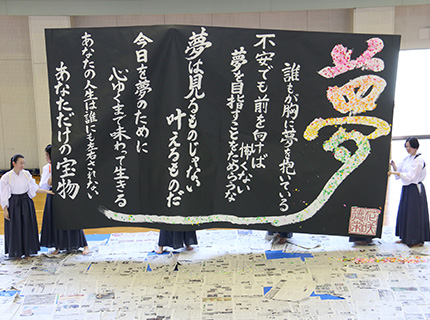 夢
誰もが胸に夢を抱いている
不安でも前を向けば
怖くない
夢を目指すことをためらうな
夢は見るものじゃない
叶えるものだ
今日を夢のために
心ゆくまで味わって生きる
あなたの人生は誰にも左右されない
あなただけの宝物